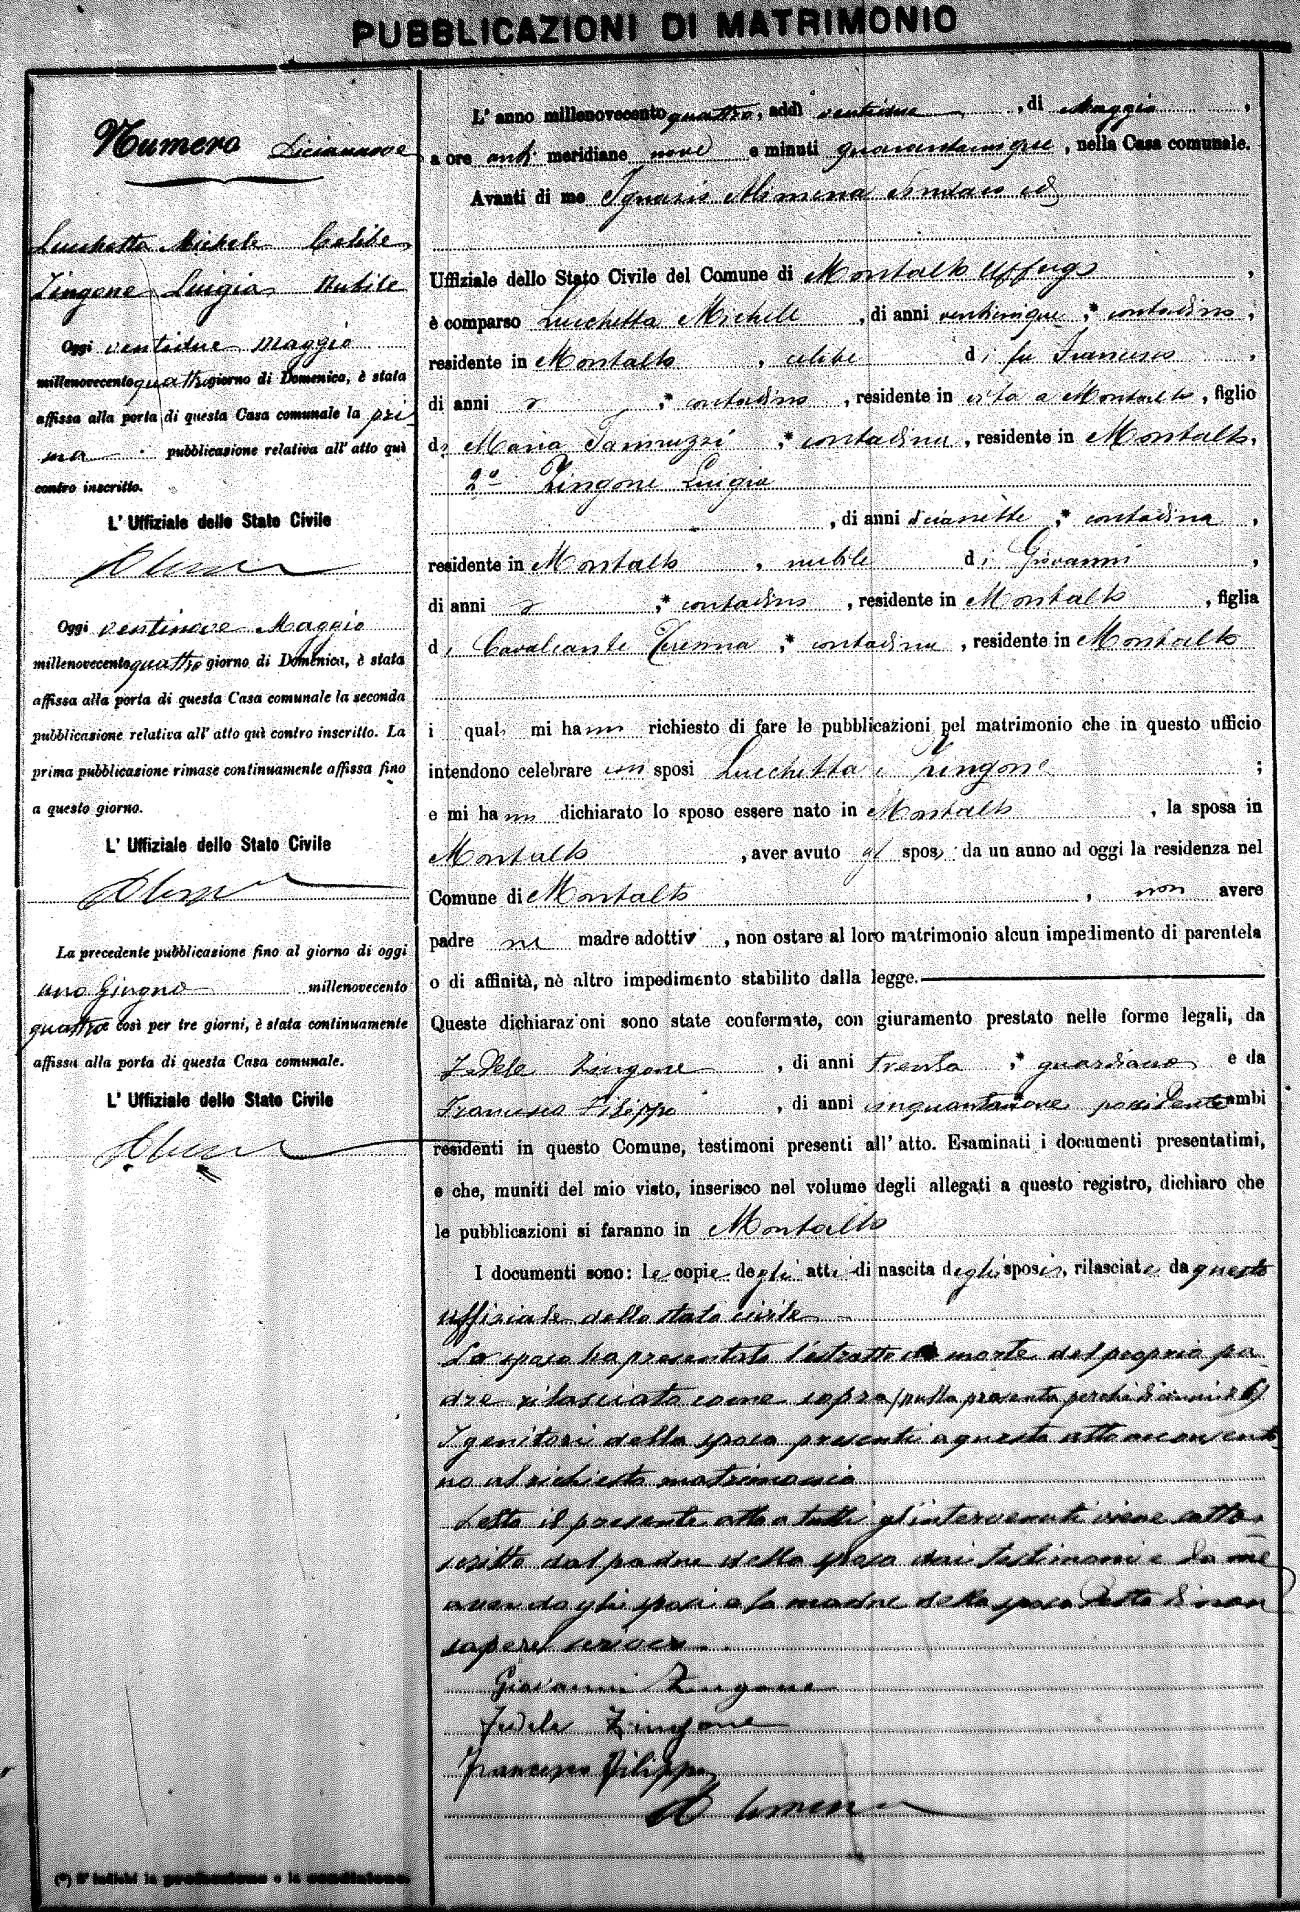 PUBBLICAZIONI DI MATRIMONIO
Numero Diciannove
Lucchetta Michele Celibe
Zingone Luigia Nubile
Oggi ventidue Maggio
millenovecento quattro giorno di Domenica, è stata
affissa alla porta di questa Casa comunale la pri-
ma pubblicazione relativa all' atto quì
contro inscritto.
L' Uffiziale dello Stato Civile
Oggi ventinove Maggio
millenovecento quattro giorno di Domenica, è stata
affissa alla porta di questa Casa comunale la seconda
pubblicazione relativa all' atto quì contro inscritto. La
prima pubblicazione rimase continuamente affissa fino
a questo giorno.
L' Uffiziale dello Stato Civile
La precedente pubblicazione fino al giorno di oggi
uno Giugno millenovecento
quattro e così per tre giorni, è stata continuamente
affissa alla porta di questa Casa comunale.
L' Uffiziale dello Stato Civile
(*) S' indichi la professione o la condizione.
L' anno millenovecento quattro, addì ventidue, di Maggio,
a ore anti meridiane nove e minuti quarantacinque, nella Casa comunale.
Avanti di me Ignazio Alimena Sindaco ed
Uffiziale dello Stato Civile del Comune di Montalto Uffugo,
è comparso Lucchetta Michele, di anni venticinque, * contadino,
residente in Montalto, celibe di fu Francesco,
di anni , * contadino, residente in vita a Montalto, figlio
di Maria Iannuzzi, * contadina, residente in Montalto,
2° Zingone Luigia
, di anni diciasette, * contadina,
residente in Montalto, nubile di Giovanni,
di anni , * contadino, residente in Montalto, figlia
di Cavalcante Teresina, * contadina, residente in Montalto
i quali mi hanno richiesto di fare le pubblicazioni pel matrimonio che in questo ufficio
intendono celebrare essi sposi Lucchetta e Zingone;
e mi hanno dichiarato lo sposo essere nato in Montalto, la sposa in
Montalto, aver avuto gl sposi da un anno ad oggi la residenza nel
Comune di Montalto, non avere
padre nè madre adottivi, non ostare al loro matrimonio alcun impedimento di parentela
o di affinità, nè altro impedimento stabilito dalla legge.
Queste dichiarazioni sono state confermate, con giuramento prestato nelle forme legali, da
Fedele Zingone, di anni trenta, * guardiano e da
Francesco Filippo, di anni cinquantanove, * possidente ambi
residenti in questo Comune, testimoni presenti all' atto. Esaminati i documenti presentatimi,
e che, muniti del mio visto, inserisco nel volume degli allegati a questo registro, dichiaro che
le pubblicazioni si faranno in Montalto
I documenti sono: le copie degli atti di nascita degli sposi, rilasciate da questo
uffiziale dello stato civile
Lo sposo ha presentato l'estratto di morte del proprio pa-
dre rilasciato come sopra (nulla presenta perchè di anni 26)
I genitori della sposa presenti a questo atto acconsento-
no al richiesto matrimonio
Letto il presente atto a tutti gl'intervenuti viene sotto-
scritto dal padre della sposa dai testimoni e da me
avendo gli sposi e la madre della sposa detto di non
sapere scrivere.
Giovanni Zingone
Fedele Zingone
Francesco Filippo
Alimena